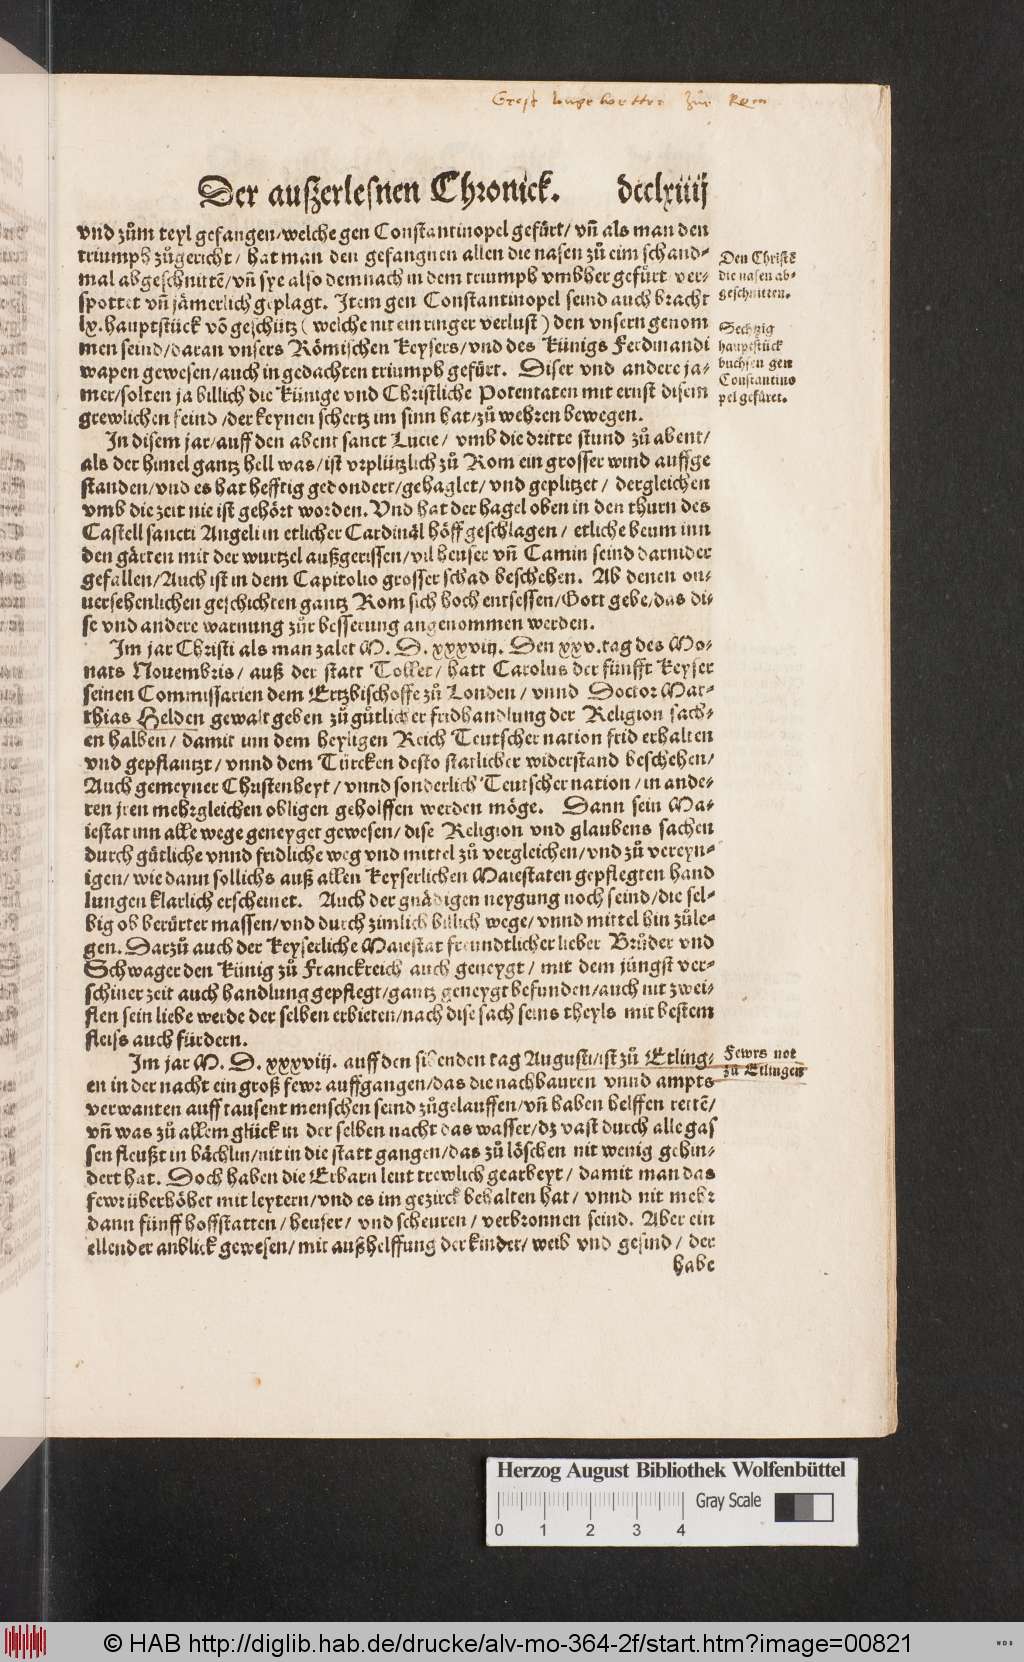 Der außzerlesnen Chronick. dcclxiiij
vnd zům teyl gefangen/welche gen Constantinopel gefürt/ vñ als man den
triumph zůgericht/ hat man den gefangnen allen die nasen zů eim schand-
mal abgeschnittẽ/vñ sye also demnach in dem triumph vmbher gefürt ver-
spottet vñ jämerlich geplagt. Item gen Constantinopel seind auch bracht
lx. hauptstück võ geschütz (welche mit ein ringer verlust) den vnsern genom
men seind/daran vnsers Römischen Keysers/vnd des Künigs Ferdinandi
wapen gewesen/auch in gedachten triumph gefürt. Diser vnd andere ja-
mer/solten ja billich die Künige vnd Christliche Potentaten mit ernst disem
grewlichen feind/der keynen schertz im sinn hat/zů wehren bewegen.
Den Christẽ
die nasen ab-
geschnitten.
Sechzig
hauptstück
buchsen gen
Constantino
pel gefüret.
In disem jar/auff den abent sanct Lucie/ vmb die dritte stund zů abent/
als der himel gantz hell was/ist vrplützlich zů Rom ein grosser wind auffge
standen/vnd es hat hefftig gedondert/gehaglet/ vnd geplitzet/ dergleichen
vmb die zeit nie ist gehört worden. Vnd hat der hagel oben in den thurn des
Castell sancti Angeli in etlicher Cardinäl höff geschlagen/ etliche beum inn
den gärten mit der wurtzel außgerissen/vil heuser vñ Camin seind darnider
gefallen/Auch ist in dem Capitolio grosser schad beschehen. Ab denen on-
uersehenlichen geschichten gantz Rom sich hoch entsessen/Gott gebe/das di-
se vnd andere warnung zůr besserung angenommen werden.
Im jar Christi als man zalet M. D. xxxviij. Den xxv.tag des Mo-
nats Nouembris/ auß der statt Tollet/ hatt Carolus der fünfft Keyser
seinen Commissarien dem Ertzbischoffe zů Londen/ vnnd Doctor Mat-
thias Helden gewalt geben zů gůtlicher fridhandlung der Religion sach-
en halben/ damit inn dem heyligen Reich Teutscher nation frid erhalten
vnd gepflantzt/ vnnd dem Türcken desto statlicher widerstand beschehen/
Auch gemeyner Christenheyt/ vnnd sonderlich Teutscher nation/in ande-
ren jren mehrgleichen obligen geholffen werden möge. Dann sein Ma-
iestat inn alle wege geneyget gewesen/ dise Religion vnd glaubens sachen
durch gütliche vnnd fridliche weg vnd mittel zů vergleichen/vnd zů vereyn-
igen/ wie dann sollichs auß allen Keyserlichen Maiestaten gepflegten hand
lungen klarlich erscheinet. Auch der gnädigen neygung noch seind/die sel-
big ob berürter massen/vnd durch zimlich billich wege/ vnnd mittel hin zůle-
gen. Darzů auch der Keyserliche Maiestat freundtlicher lieber Brůder vnd
Schwager den Künig zů Franckreich auch geneygt/ mit dem jüngst ver-
schiner zeit auch handlung gepflegt/gantz geneygt befunden/auch nit zwei-
flen sein liebe werde der selben erbieten/nach dise sach seins theyls mit bestem
fleiss auch fürdern.
Im jar M. D. xxxviij. auff den sibenden tag Augusti/ist zů Etling-
en in der nacht ein groß fewr auffgangen/das die nachbauren vnnd ampts
verwanten auff tausent menschen seind zůgelauffen/vñ haben helffen rettẽ/
vñ was zů allem glück in der selben nacht das wasser/dz vast durch alle gas
sen fleußt in bächlin/nit in die statt gangen/das zů löschen nit wenig gehin-
dert hat. Doch haben die Erbarn leut trewlich gearbeyt/ damit man das
fewr überhöhet mit leytern/vnd es im gezirck behalten hat/ vnnd nit mehr
dann fünff hoffstatten/heuser/ vnd scheuren/ verbronnen seind. Aber ein
ellender anblick gewesen/ mit außhelffung der kinder/ weib vnd gesind/ der
habe
Fewrs not
zů Etlingen
Herzog August Bibliothek Wolfenbüttel
Gray Scale
0 1 2 3 4
© HAB http://diglib.hab.de/drucke/alv-mo-364-2f/start.htm?image=00821